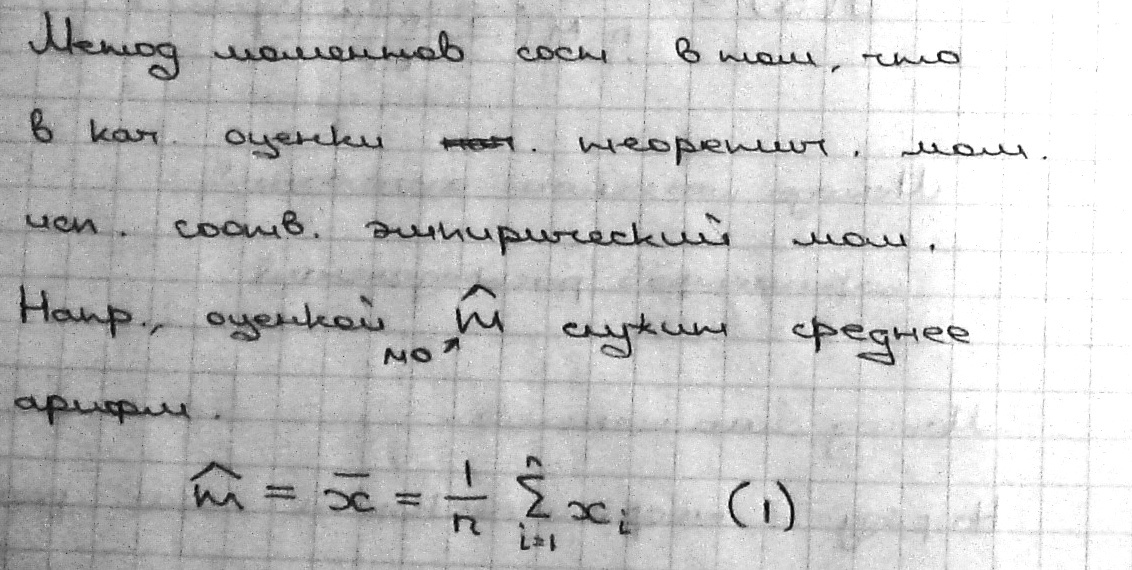 Метод моментов сост. в том, что
в кач. оценки теоретич. мом.
исп. соотв. эмпирический мом.
Напр., оценкой m̂ служит среднее
МО↗
арифм.
m̂ = x̄ = 1/n ∑ᵢ₌₁ⁿ xᵢ (1)